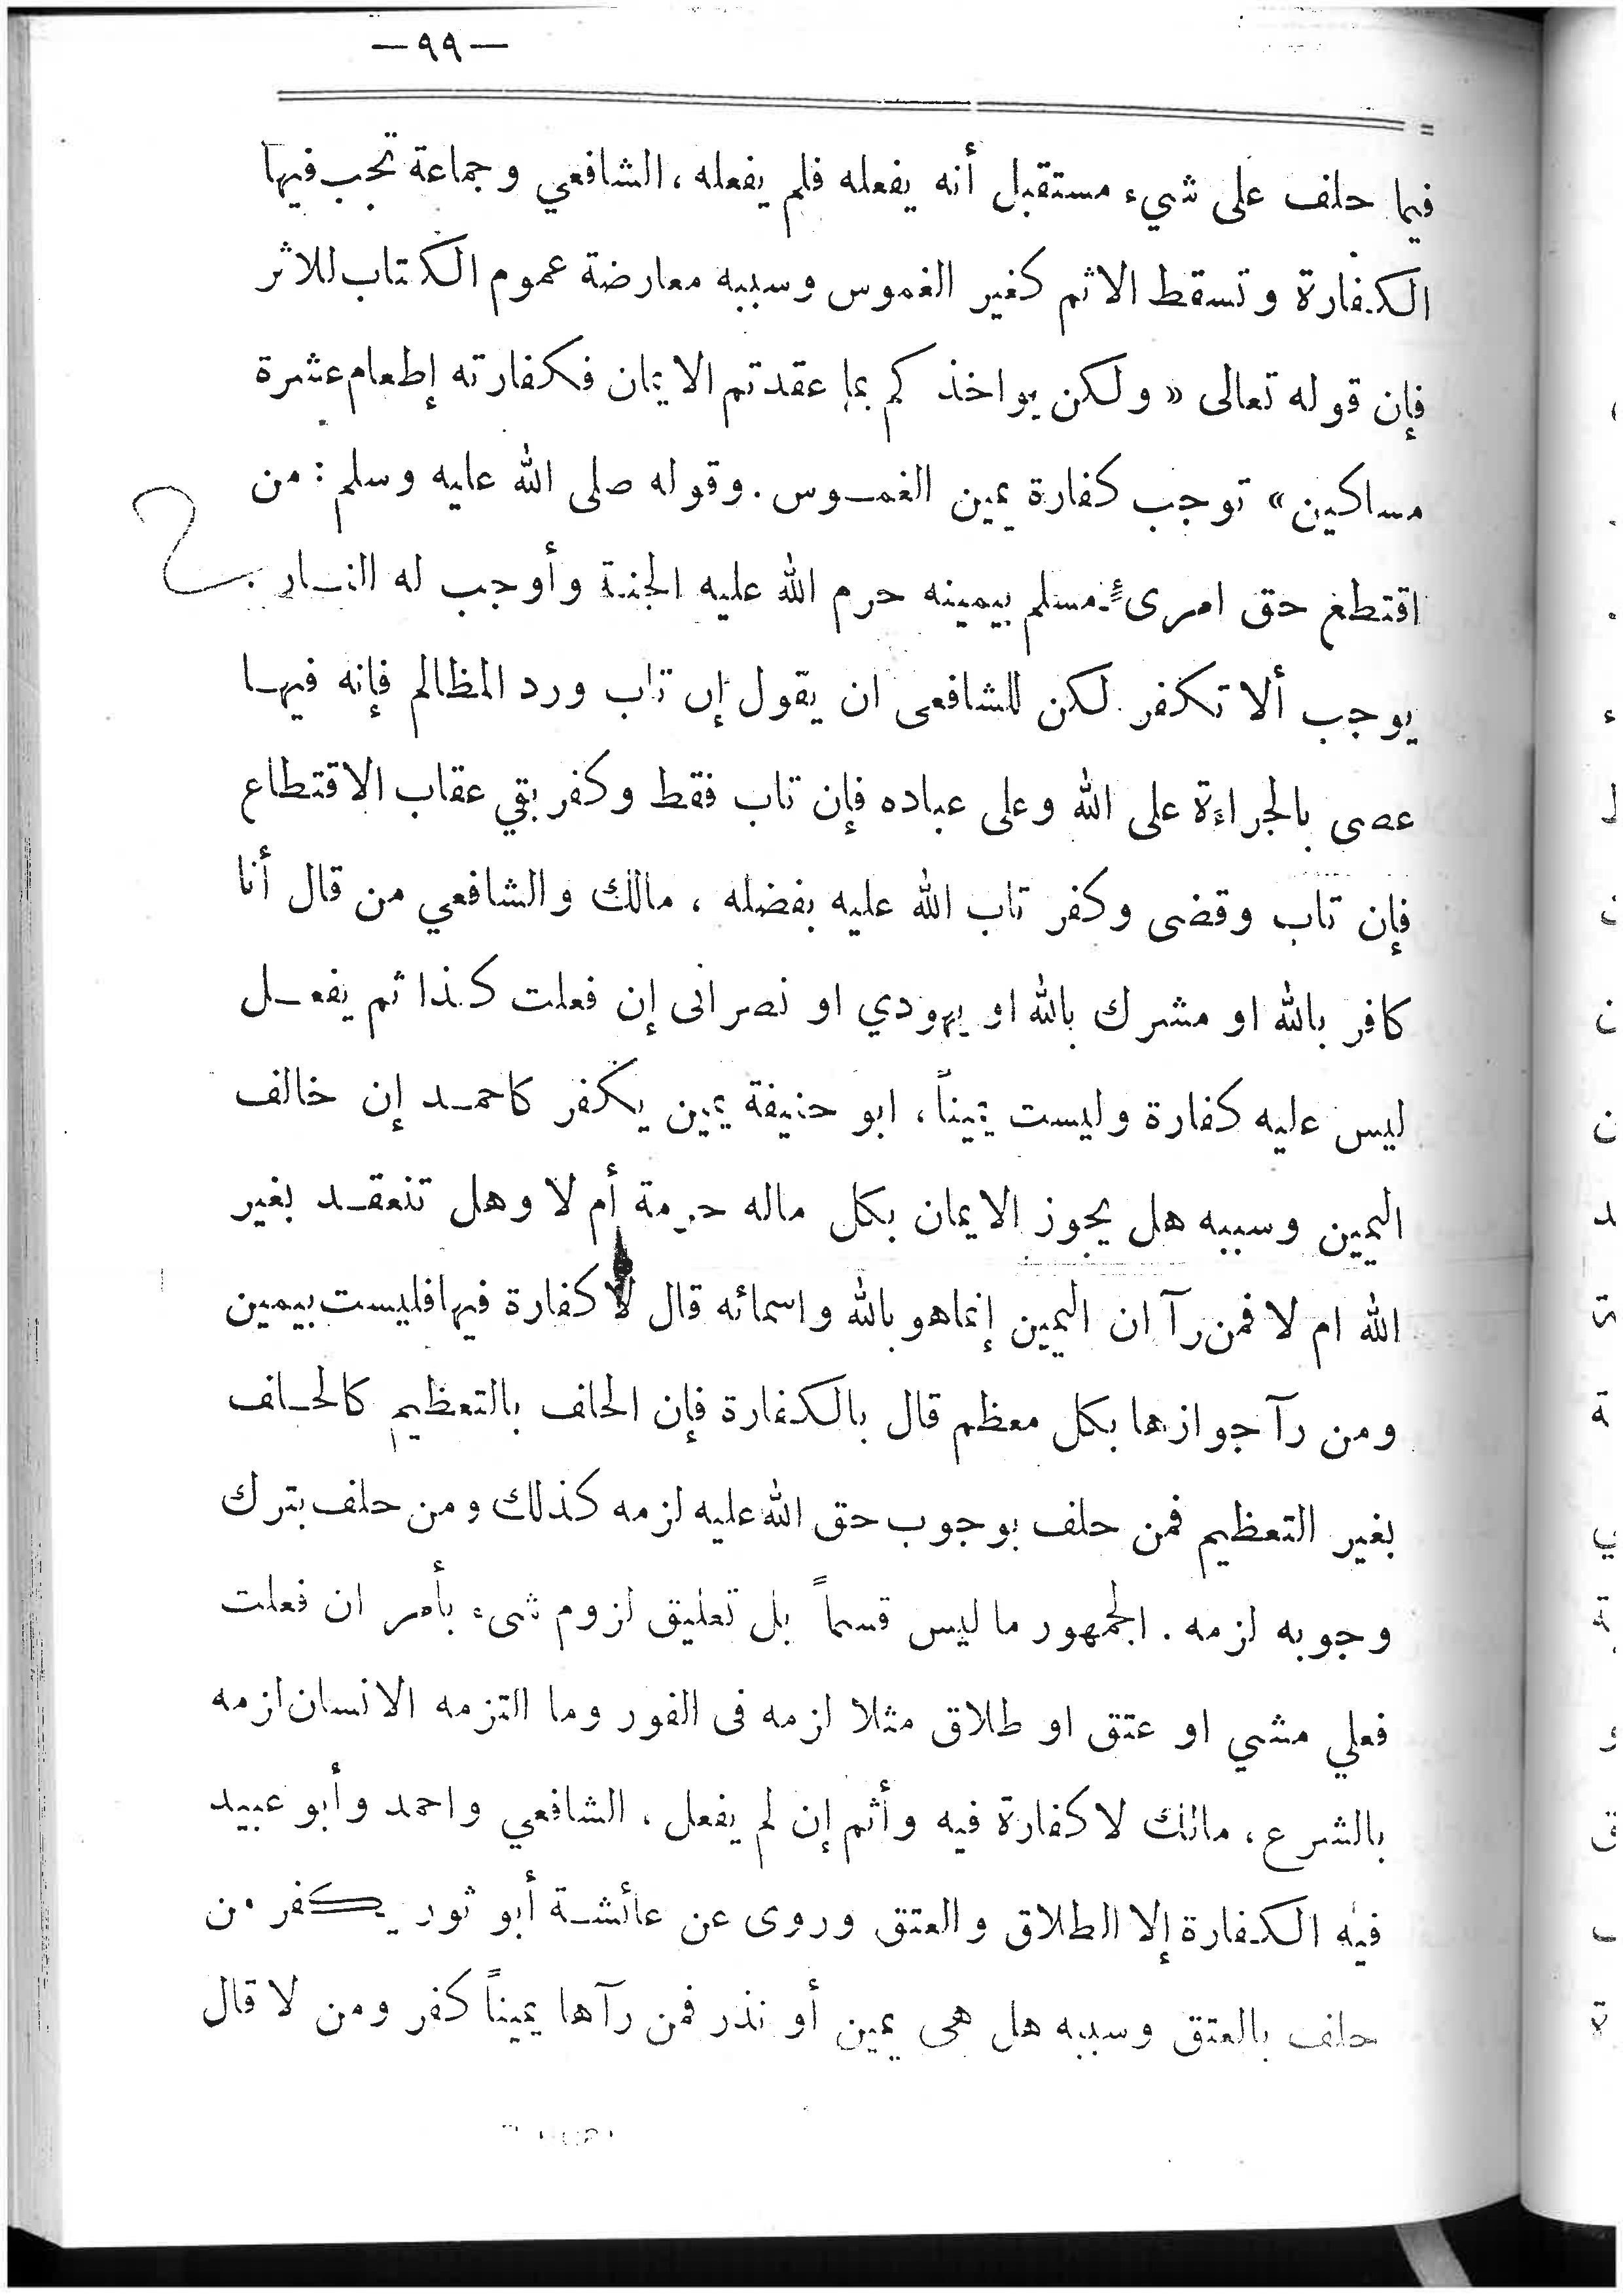 —٩٩—
فيما حلف على شيء مستقبل أنه يفعله فلم يفعله، الشافعي وجماعة تجب فيها
الكفارة وتسقط الاثم كغير الغموس وسببه معارضة عموم الكتاب للاثر
فإن قوله تعالى « ولكن يواخذ كم بما عقدتم الايمان فكفارته إطعام عشرة
مساكين» توجب كفارة يمين الغموس. وقوله صلى الله عليه وسلم: من
اقتطغ حق امرىء مسلم بيمينه حرم الله عليه الجنة وأوجب له النار.
يوجب ألا تكفر. لكن للشافعى ان يقول إن تاب ورد المظالم فإنه فيها
عصى بالجراءة على الله وعلى عباده فإن تاب فقط وكفر بقي عقاب الاقتطاع
فإن تاب وقضى وكفر تاب الله عليه بفضله، مالك والشافعي من قال أنا
كافر بالله او مشرك بالله او يهودي او نصرانى إن فعلت كذا ثم يفعل
ليس عليه كفارة وليست يميناً، ابو حنيفة يمين يكفر كاحمد إن خالف
اليمين وسببه هل يجوز الايمان بكل ماله حرمة أم لا وهل تنعقد بغير
الله ام لا فمن رآ ان اليمين إنماهو بالله واسمائه قال لا كفارة فيها فليست بيمين
ومن رآ جوازها بكل معظم قال بالكفارة فإن الحالف بالتعظيم كالحالف
بغير التعظيم فمن حلف بوجوب حق الله عليه لزمه كذلك ومن حلف بترك
وجوبه لزمه. الجمهور ما ليس قسماً بل تعليق لزوم شىء بأمر ان فعلت
فعلي مشي او عتق او طلاق مثلا لزمه فى الفور وما التزمه الانسان لزمه
بالشرع، مالك لا كفارة فيه وأثم إن لم يفعل، الشافعي واحمد وأبو عبيد
فيه الكفارة إلا الطلاق والعتق وروى عن عائشة أبو ثور يكفر من
حلف بالعتق وسببه هل هى يمين أو نذر فمن رآها يميناً كفر ومن لا قال